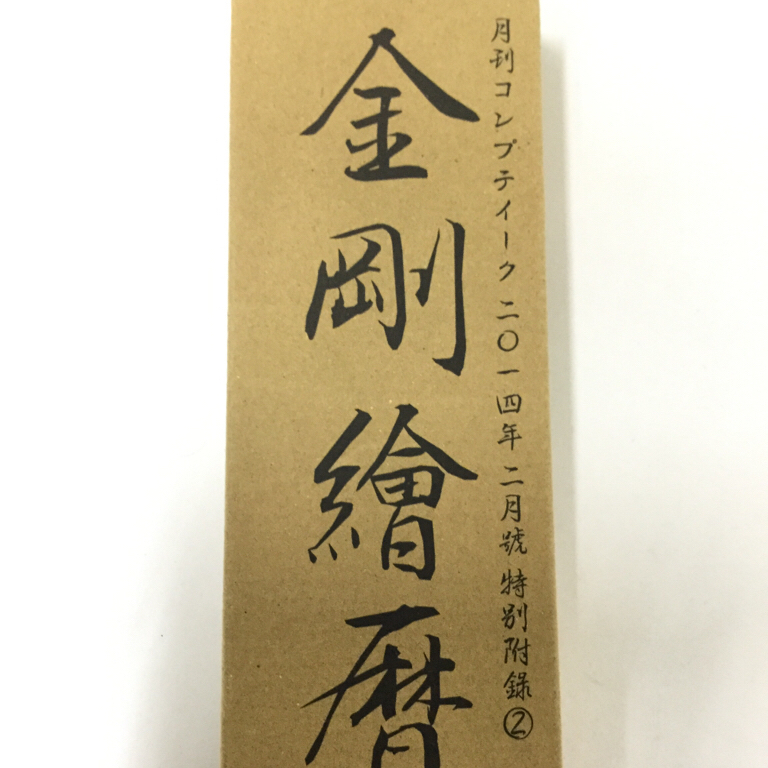 月刊コンプティーク 二〇一四年 二月號 特別附録②
金剛繪暦